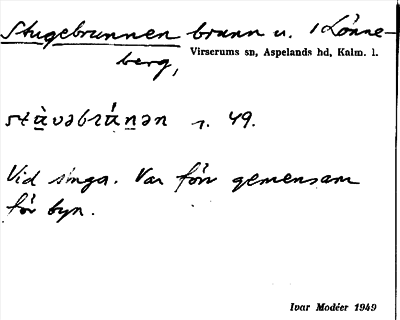 Stugebrunnen brunn u. Lönne-
berg, Virserums sn, Aspelands hd, Kalm. l.
stàvəbránən r. 49.
Vid stuga. Var förr gemensam
för byn.
Ivar Modéer 1949